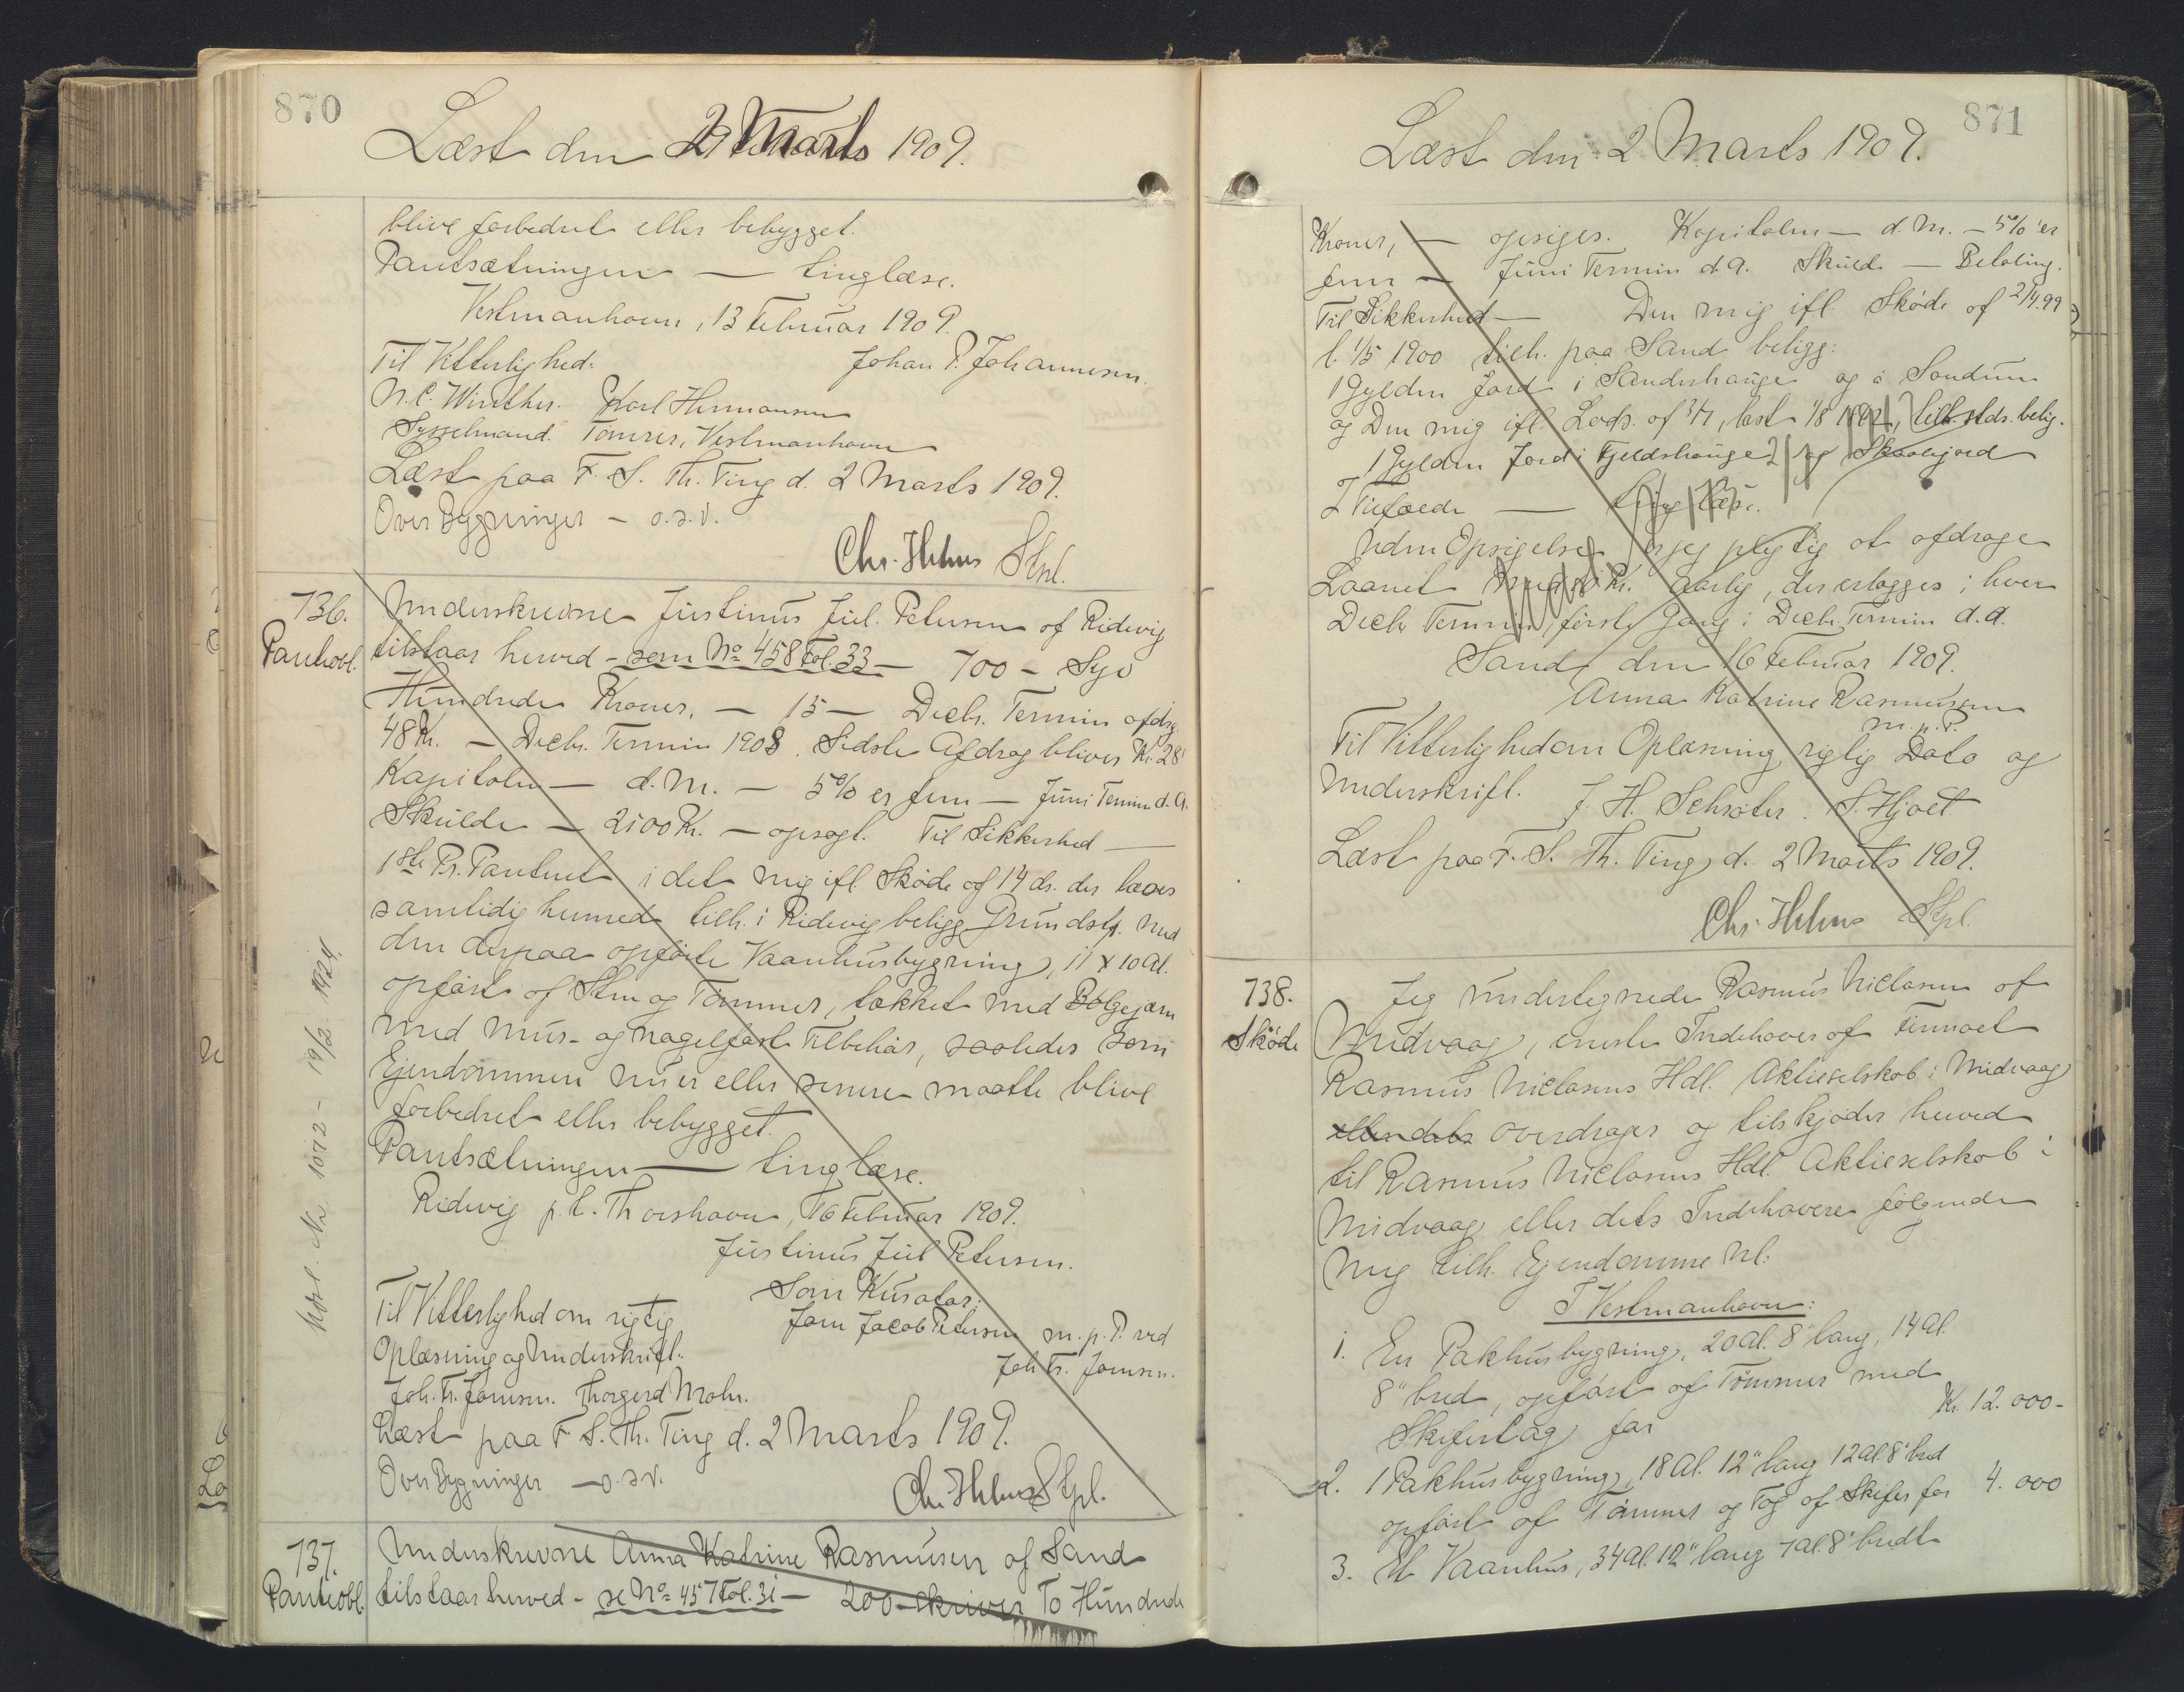 870
Læst den 2 Marts 1909.
blive forbedret eller bebygget.
Pantsætningen — tinglæse.
Vestmanhavn, 13 Februar 1909.
Til Vitterlighed: Johan P. Johannesen.
N. C. Winther. Karl Hermansen
Sysselmand. Tømrer, Vestmanhavn
Læst paa F. S. Th. Ting d. 2 Marts 1909.
Over Bygninger — o.s.v.
Chr. Helms Stpl.
736.
Pantobl.
Underskrevne Justinus Juel Petersen af Ridevig
tilstaar herved - som No 458 Fol. 33 — 700 - Syv
Hundrede Kroner, — 15 — Decbr. Termin afdrg.
48 Kr. — Decbr. Termin 1908. Sidste Afdrag bliver Kr. 28
Kapitalen — d. M. — 5% er fem — Juni Termin d. A.
Skulde — 2100 Kr. — opsagt. Til Sikkerhed —
1ste Pr. Panteret i det mig ifl. Skøde af 14 ds. der læses
samtidig hermed tilh. i Ridevig beligg. Grundst. med
den derpaa opførte Vaanhusbygning, 11 x 10 Al.
opført af Sten og Tømmer, tækket med Bølgejærn
med mur- og nagelfast Tilbehør, saaledes som
Ejendommen nu er eller senere maatte blive
forbedret eller bebygget.
Pantsætningen — tinglæse.
Ridevig p. t. Thorshavn, 16 Februar 1909.
Justinus Juel Petersen.
Som Kurator:
Til Vitterlighed om rigtig Joen Jacob Petersen m. p. P. ved
Oplæsning og Underskrift. Joh. Fr. Joensen.
Joh. Fr. Joensen. Thorgerd Mohr.
Læst paa F. S. Th. Ting d. 2 Marts 1909.
Over Bygninger — o.s.v.
Chr. Helms Stpl.
1072 - 19/2 1924
737.
Pantobl.
Underskrevne Anna Katrine Rasmussen af Sand
tilstaar herved - se No 457 Fol. 31 — 200 skriver To Hundrede
871
Læst den 2 Marts 1909.
Kroner, — opsiges. Kapitalen — d. M. — 5% er
fem — Juni Termin d. A. Skulde — Betaling.
Til Sikkerhed — Den mig ifl. Skøde af 2/4.99
l. 1/5 1900 tilh. paa Sand beligg:
1 Gylden Jord i Sandershauge og á Sondum
og Den mig ifl. Lods. af 3/7, læst 1/8 tilh. stds. belig.
1 Gylden Jord i Fjeldshauge og Skaalejord
Trefoede —
Uden Opsigelse er jeg pligtig at afdrage
Laanet Kr. aarlig, der erlægges i hver
Decbr. Termin første Gang i Decbr. Termin d. A.
Sand, den 16 Februar 1909.
Anna Katrine Rasmussen
m. p. P.
Til Vitterlighed om Oplæsning rigtig Dato og
Underskrift. J. H. Schrøter. S. Hjoet
Læst paa F. S. Th. Ting d. 2 Marts 1909.
Chr. Helms Stpl.
738.
Skøde
Jeg undertegnede Rasmus Niclasen af
Midvaag, eneste Indehaver af Firmaet
Rasmus Niclasens Hdl. Aktieselskab i Midvaag
eller dets overdrager og tilskjøder herved
til Rasmus Niclasens Hdl. Aktieselskab i
Midvaag eller dets Indehavere følgende
mig tilh. Ejendomme nl:
I Vestmanhavn:
1. En Pakhusbygning, 20 Al. 8" lang, 14 Al.
8" bred, opført af Tømmer med
Skifertag for Kr. 12.000-
2. 1 Pakhusbygning, 18 Al. 12" lang 12 Al. 8" bred
opført af Tømmer og Tag af Skifer for 4.000
3. Et Vaanhus, 34 Al. 12" lang 7 Al. 8" bredt